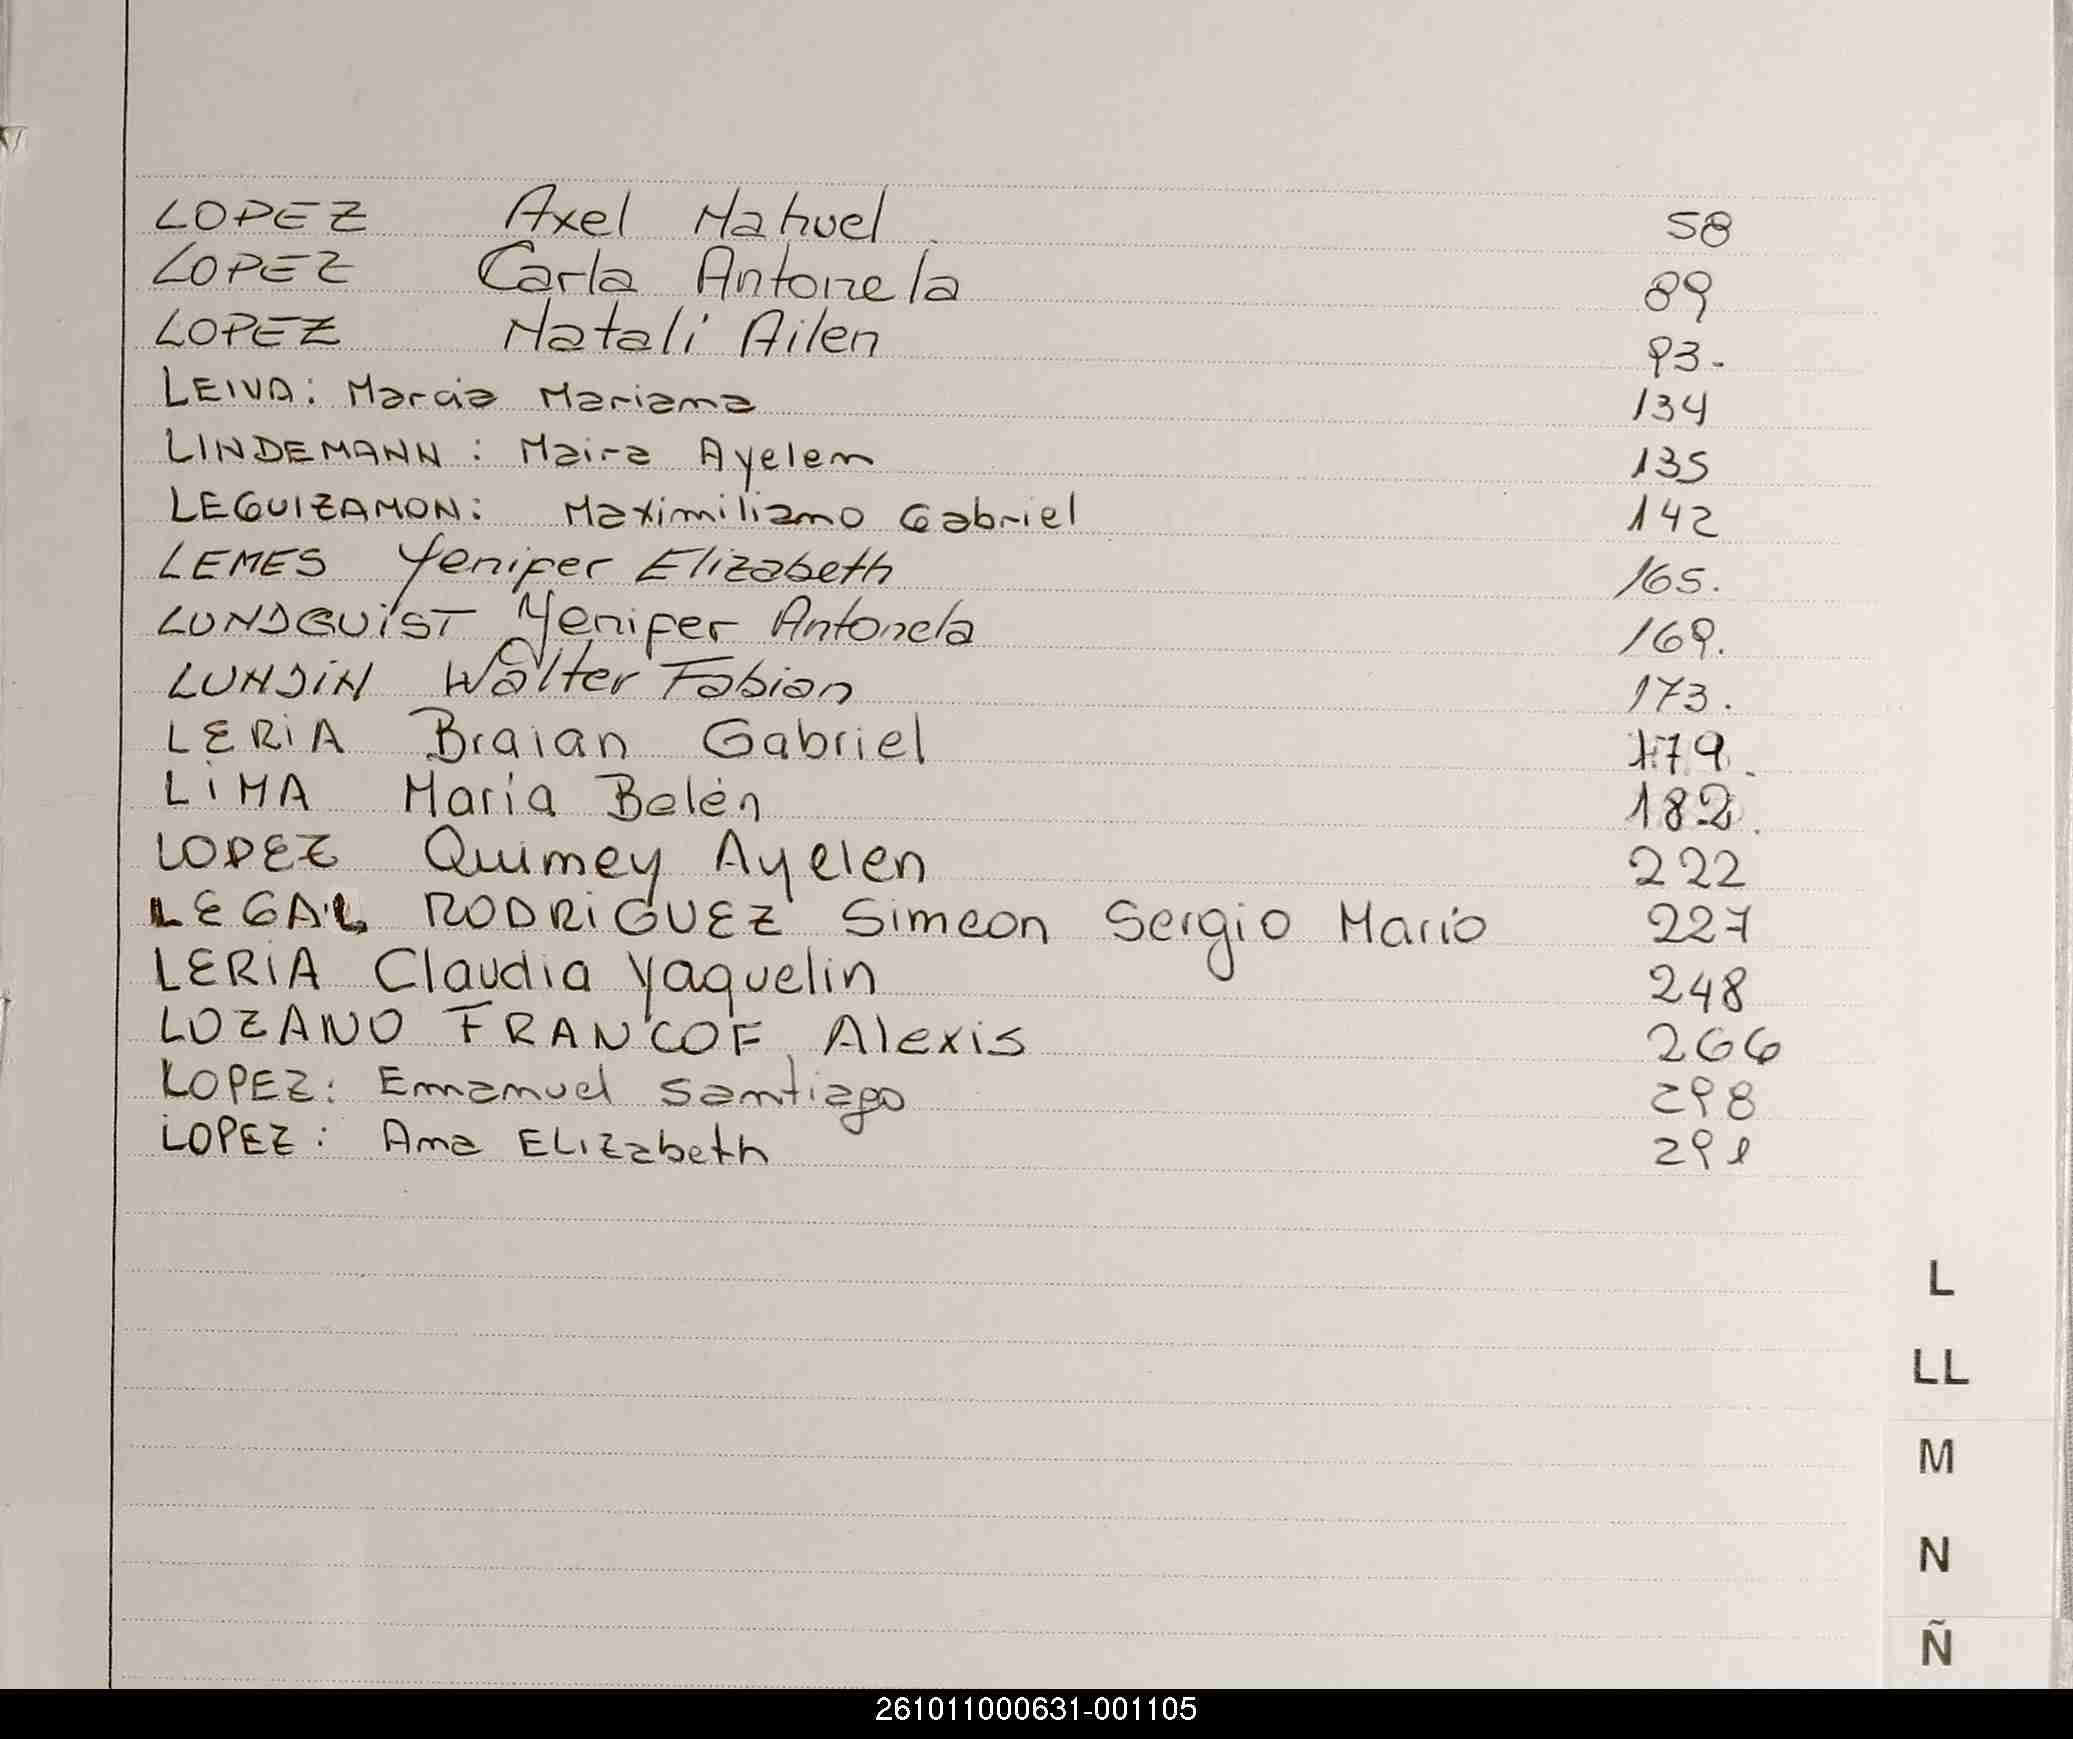 LOPEZ Axel Nahuel 58
LOPEZ Carla Antonela 89
LOPEZ Natali Ailen 93.
LEIVA: Marcia Mariana 134
LINDEMANN: Maira Ayelen 135
LEGUIZAMON: Maximiliano Gabriel 142
LEMES Yenifer Elizabeth 165.
LUNDQUIST Yenifer Antonela 169.
LUNDIN Walter Fabian 173.
LERIA Braian Gabriel 179.
LIMA María Belén 182.
LOPEZ Quimey Ayelen 222
LEGAL RODRIGUEZ Simeon Sergio Mario 227
LERIA Claudia Yaquelin 248
LOZANO FRANCOF, Alexis 266
LOPEZ: Emanuel Santiago 298
LOPEZ: Ana ELIZabeth 291
L
LL
M
N
Ñ
261011000631-001105